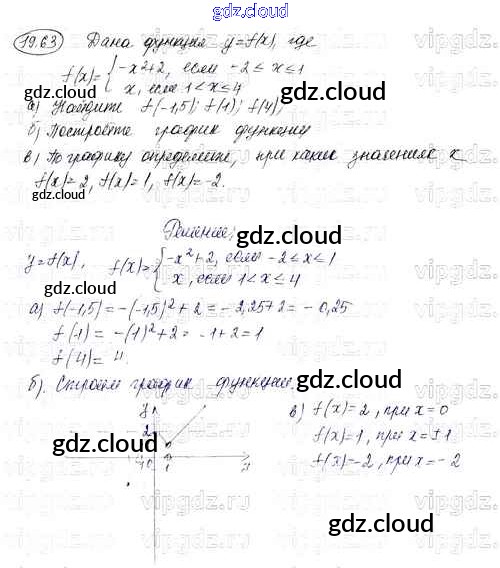 gdz.cloud
19.63 Дана функция y=f(x), где
f(x)={ -x²+2, если -2≤x≤1
x, если 1<x≤4
а) Найдите f(-1,5); f(1); f(4);
б) Постройте график функции
в) По графику определите, при каких значениях x
f(x)=2, f(x)=1, f(x)=-2.
gdz.cloud
gdz.cloud
Решение:
gdz.cloud
y=f(x), f(x)={ -x²+2, если -2≤x≤1
x, если 1<x≤4
а) f(-1,5)=-(-1,5)²+2=-2,25+2=-0,25
f(1)=-(1)²+2=-1+2=1
f(4)=4.
gdz.cloud
б). Строим график функции.
y
2
1
0 1 x
gdz.cloud
в) f(x)=2, при x=0
f(x)=1, при x=±1
f(x)=-2, при x=-2
gdz.cloud
gdz.cloud
gdz.cloud